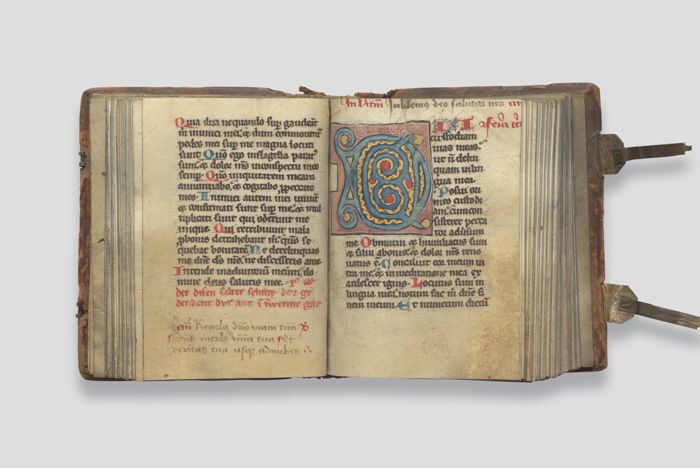 Quia dixi nequando sup gaudeāt
m inimici mei et dum commouent
pedes mei sup me magna locuti
sunt Quō ego inflagella parat
sum et dolor mꝰ inconspectu meo
semp Quō iniquitatem meam
annuntiabo et cogitabo p peccato
meo Inimici autem mei uiuūt
et confirmati sunt sup me et mul
tiplicati sunt qui oderunt me
inique Qui retribuunt mala
p bonis detrahebant m qm̄ se
quebar bonitatē Ne derelinquas
me dn̄e ds̄ ms̄ ne discesseris a me
Intende inadiutoriū meum dn̄e
salutis mee
Reuela dn̄o viam tuā
veritas tua usq ad nubes
In Iubilemus deo salutari nro
custodiam
uias meas
ut n̄ delin
quam in lin
gua mea
Posui ori
meo custodi
am cum con
sisteret pecca
tor aduersū
me Obmutui et humiliatus sum
et silui a bonis et dolor ms̄ reno
uatus ē Concaluit cor meum in
tra me et in meditatione mea ex
ardescet ignis Locutus sum in
lingua mea notum fac m dn̄e fi
nem meum Et numerum dierū